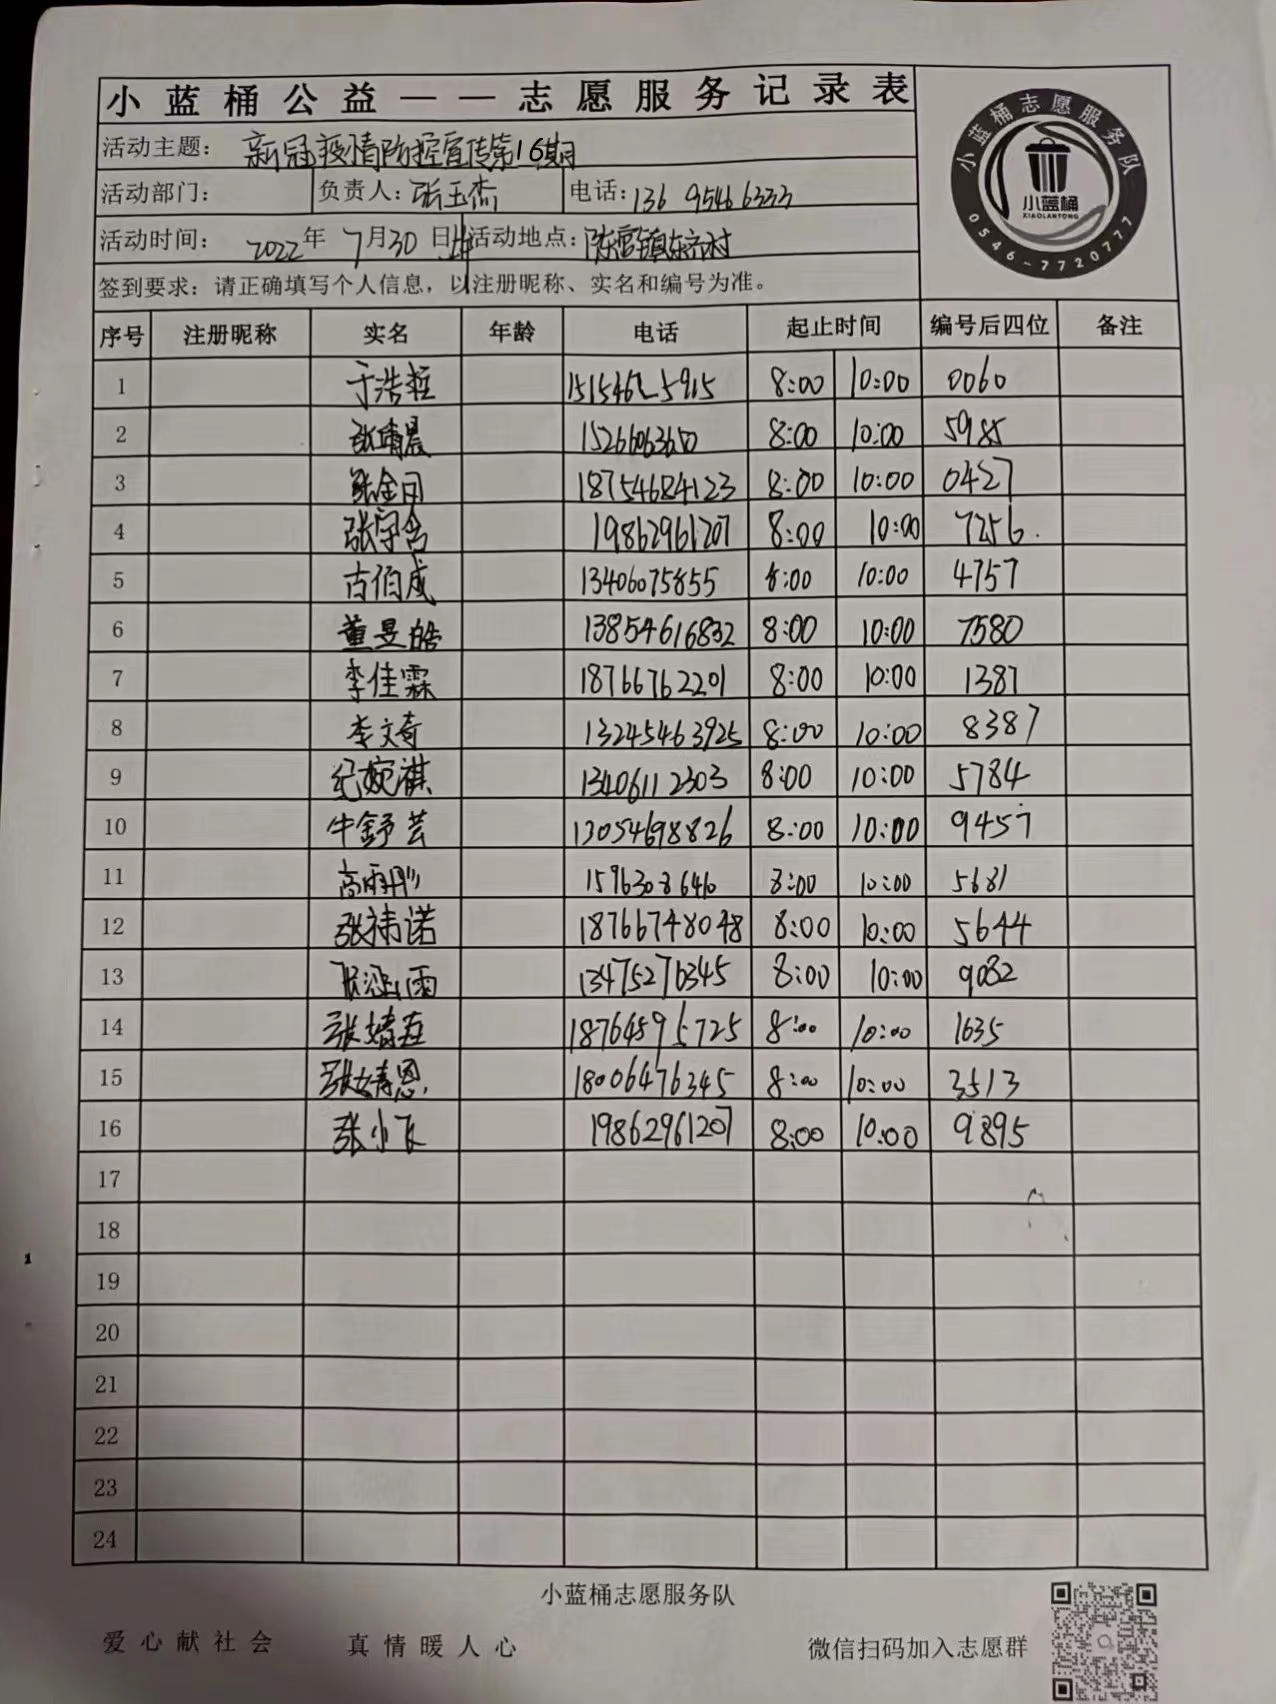 小蓝桶公益——志愿服务记录表
活动主题：新冠疫情防控宣传第16期
活动部门： 负责人：张玉杰 电话：136 95466333
活动时间：2022年7月30日 活动地点：陈官镇东齐村
签到要求：请正确填写个人信息，以注册昵称、实名和编号为准。
小蓝桶志愿服务队
小蓝桶
XIAOLANTONG
0546-7720777
序号 注册昵称 实名 年龄 电话 起止时间 编号后四位 备注
1 于浩 8:00 10:00 0060
2 张靖晨 15266063650 8:00 10:00 5985
3 张金 18754684123 8:00 10:00 0427
4 张宇含 19862961207 8:00 10:00 7256
5 古伯威 13406075855 8:00 10:00 4757
6 董昱皓 13854616832 8:00 10:00 7580
7 李佳霖 18766762201 8:00 10:00 1387
8 李文奇 13245463925 8:00 10:00 8387
9 纪婉祺 13406112303 8:00 10:00 5784
10 牛舒芸 13054698826 8:00 10:00 9457
11 高雨彤 15963086410 8:00 10:00 5681
12 张祎诺 18766748048 8:00 10:00 5644
13 张涵雨 13475276345 8:00 10:00 9082
14 张婧 18764595725 8:00 10:00 1635
15 张婧恩 18006476345 8:00 10:00 3513
16 张小飞 19862961207 8:00 10:00 9895
17
18
19
20
21
22
23
24
小蓝桶志愿服务队
爱心献社会 真情暖人心 微信扫码加入志愿群